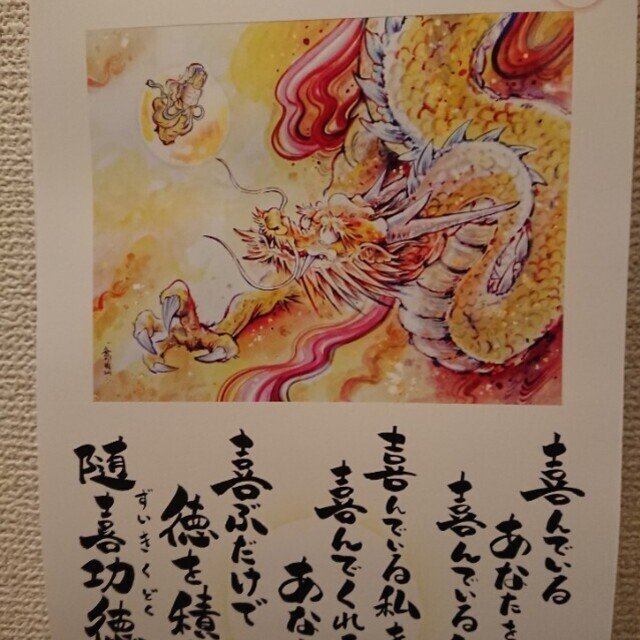 喜んでいる
あなたを
喜んでいる
喜んでいる私を
喜んでくれる
あな
喜ぶだけで
徳を積
随喜功徳
ずいきくどく